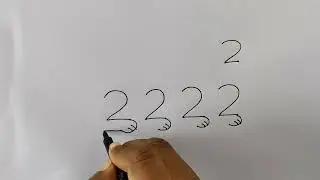 2
2 2 2 2